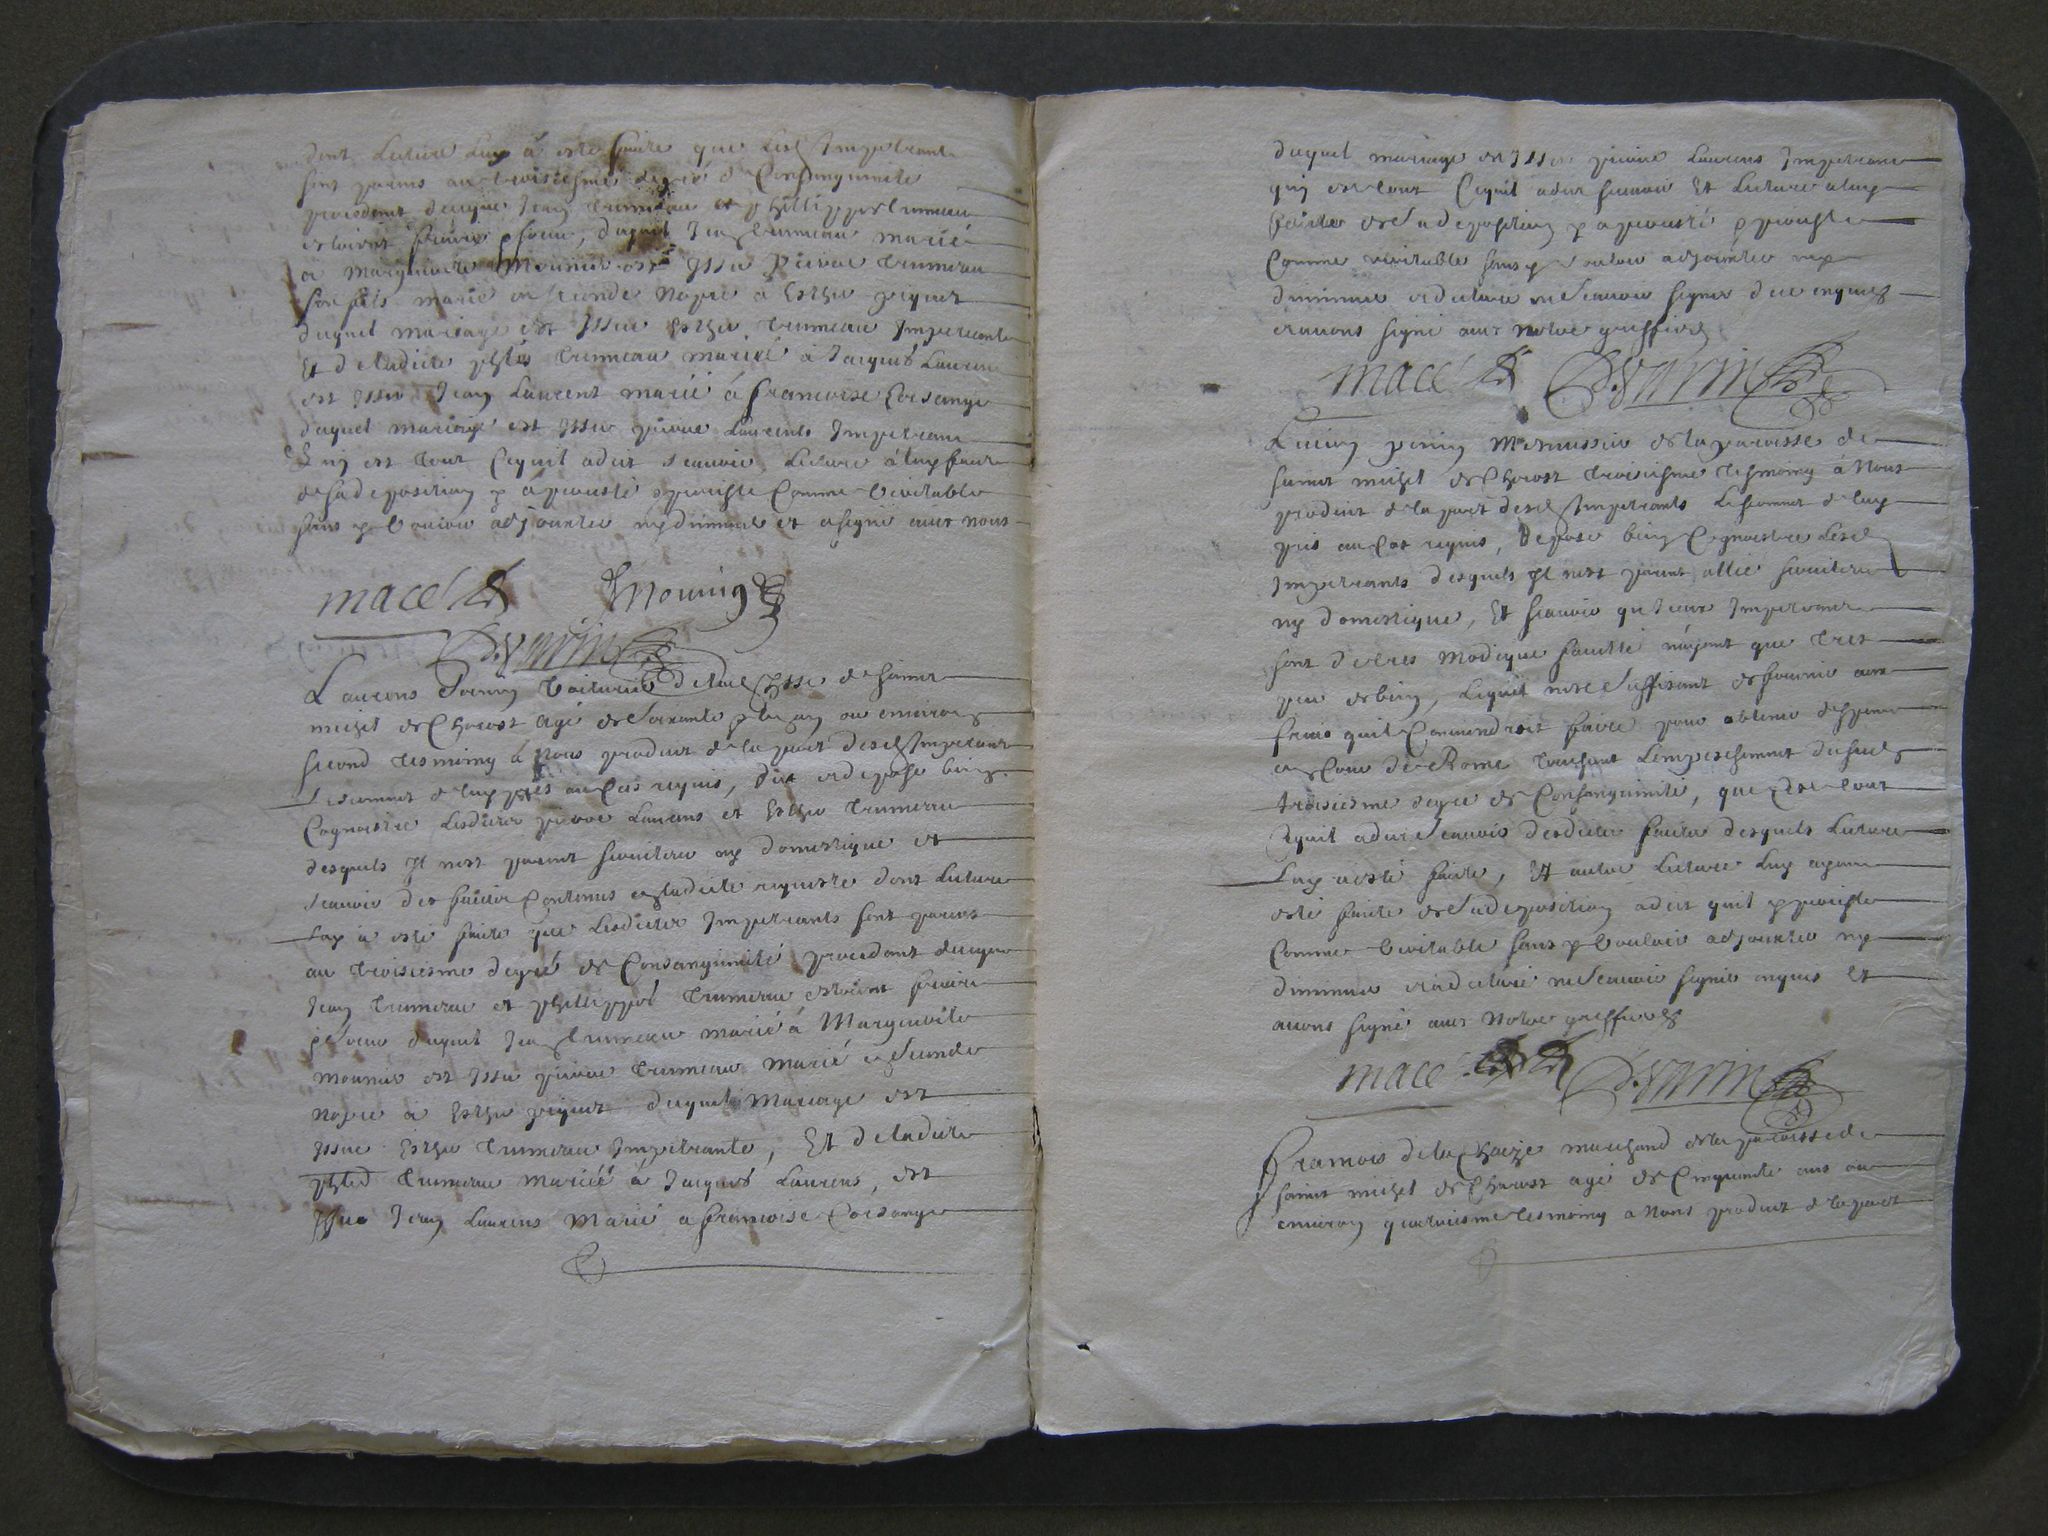 dont Lecture Luy a este faicte que Lesd Impetrants
sont parens au troisiesme degré de Consanguinité
procedent de ce que Jean trumeau et phillippes trumeau
estoient frere & soeur, duquel Jean trumeau marié
a Marguerite Mounier est Issu Pierre trumeau
son fils marié en seconde Nopce à Esther
duquel mariage est Issue Esther trumeau Impetrante
Et de ladicte trumeau mariée à Jacques Laurens
est Issu Jean Laurent marié à francoise Corsange
duquel mariage est Issu pierre Laurents Impetrant
Qui est tout Ce quil a dit scauoir, Lecture à luy faicte
de sa deposition y a persisté Comme veritable
sans y vouloir adjouster ny diminuer et a signé auec nous
macé Mounin
D. Varin
Laurens voiturier de lad psse de saint
michel de Cherost agé de soixante ans ou environ
second tesmoing à Nous produit de la part desd Impetrants
Le serment de luy pris au Cas requis, dit et depose bien
Cognoistre Lesdicts pierre Laurens et Esther trumeau
desquels Il n'est parent seruiteur ny domestique et
scauoir des faicts Contenus en ladicte requeste dont Lecture
Luy a este faicte que Lesdicts Impetrants sont parens
au troisiesme degré de Consanguinité procedant de ce que
Jean trumeau et phillippes trumeau estoient frere
& soeur duquel Jean trumeau marié à Marguerite
Mounier est Issu pierre trumeau marié en seconde
Nopce à Esther duquel Mariage est
Issue Esther trumeau Impetrante, Et de ladicte
trumeau mariéé à Jacques Laurens, est
Issu Jean Laurens Marié a francoise Corsange
duquel mariage est Issu pierre Laurens Impetrant
qui est tout Ce quil a dit scauoir Et Lecture a luy
faicte de sa deposition y a persisté
Comme veritable sans y vouloir adjouster ny
diminuer et a declaré ne scauoir signer de ce enquis
et auons signé auec Notre greffier
macé D. Varin
de la paroisse de
sainct michel de Cherost troisiesme tesmoing à Nous
produit de la part desd Impetrants Le serment de luy
pris au Cas requis, Depose bien Cognoistre Lesd
Impetrants desquels Il n'est parent allié seruiteur
ny domestique, Et scauoir que Iceux Impetrants
sont de tres Modique faculté n'ayent que tres
peu de bien, Lequel n'est suffisant de fournir aux
frais quil Conuiendroit faire pour obtenir dispense
en Cour de Rome touchant Lempeschement du susd
troisiesme degré de Consanguinité, que Cest tout
Cequil a dit scauoir desdicts faicts desquels Lecture
Luy a esté faicte, Et autre Lecture Luy ayant
esté faicte de sa deposition a dit quil y persiste
Comme veritable sans y vouloir adjouster ny
diminuer et a declaré ne scauoir signer enquis Et
auons signé auec Notre greffier
macé D. Varin
francois de la Chaize marchand de la paroisse de
sainct michel de Cherost agé de Cinquante ans ou
environ quatriesme tesmoing a Nous produit de la part